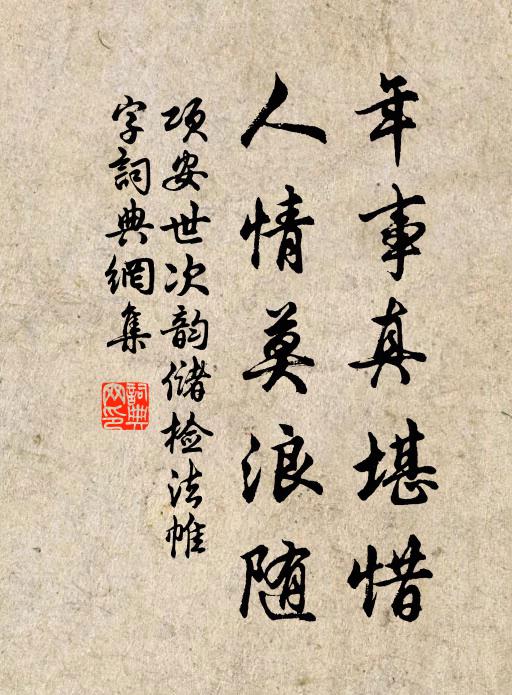 年事真堪惜
人情莫浪随
项安世次韵储检法帷
字詞典網集
詞典网印